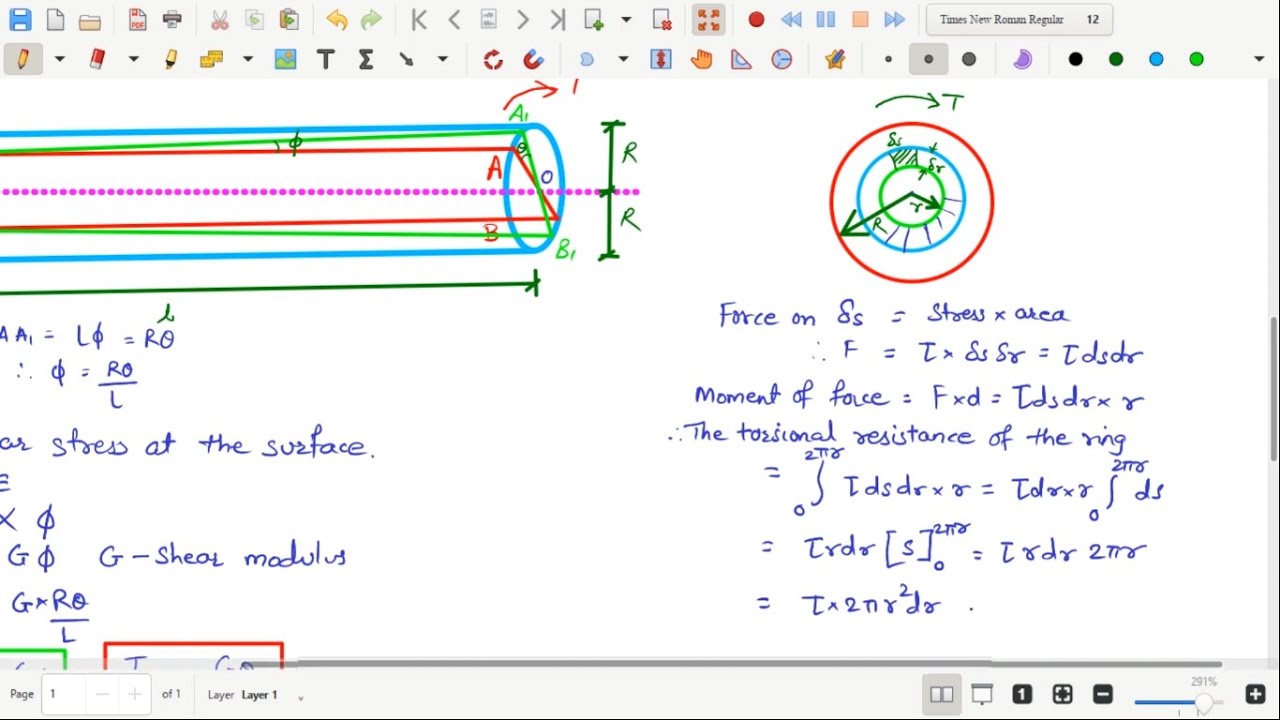 Times New Roman Regular 12
T
A₁
ϕ
θ
A
O
R
R
B
B₁
l
T
δs
δr
r
R
AA₁ = Lϕ = Rθ
∴ ϕ = Rθ/L
ar stress at the surface.
∝ ϕ
Gϕ G - Shear modulus
G × Rθ/L
Force on δs = Stress × area
∴ F = τ × δs δr = τ ds dr
Moment of force = F × d = τ ds dr × r
∴ The torsional resistance of the ring
= ∫₀^2πr τ ds dr × r = τ dr × r ∫₀^2πr ds
= τ r dr [s]₀^2πr = τ r dr 2πr
= τ × 2πr² dr .
Page 1 of 1 Layer Layer 1
291%